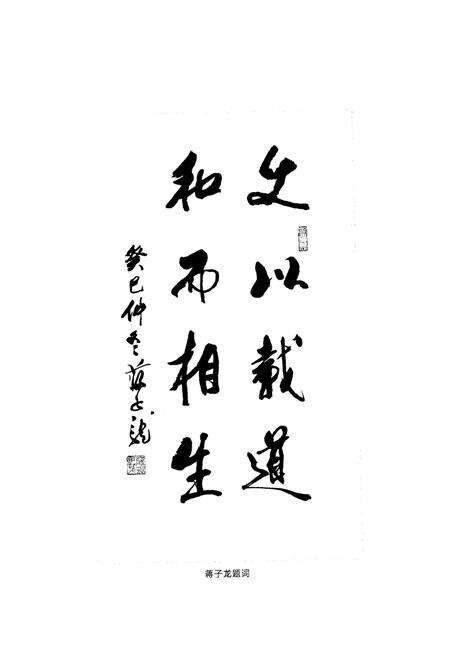 文以載道
和而相生
癸巳仲冬 蒋子龙
蒋子龙题词